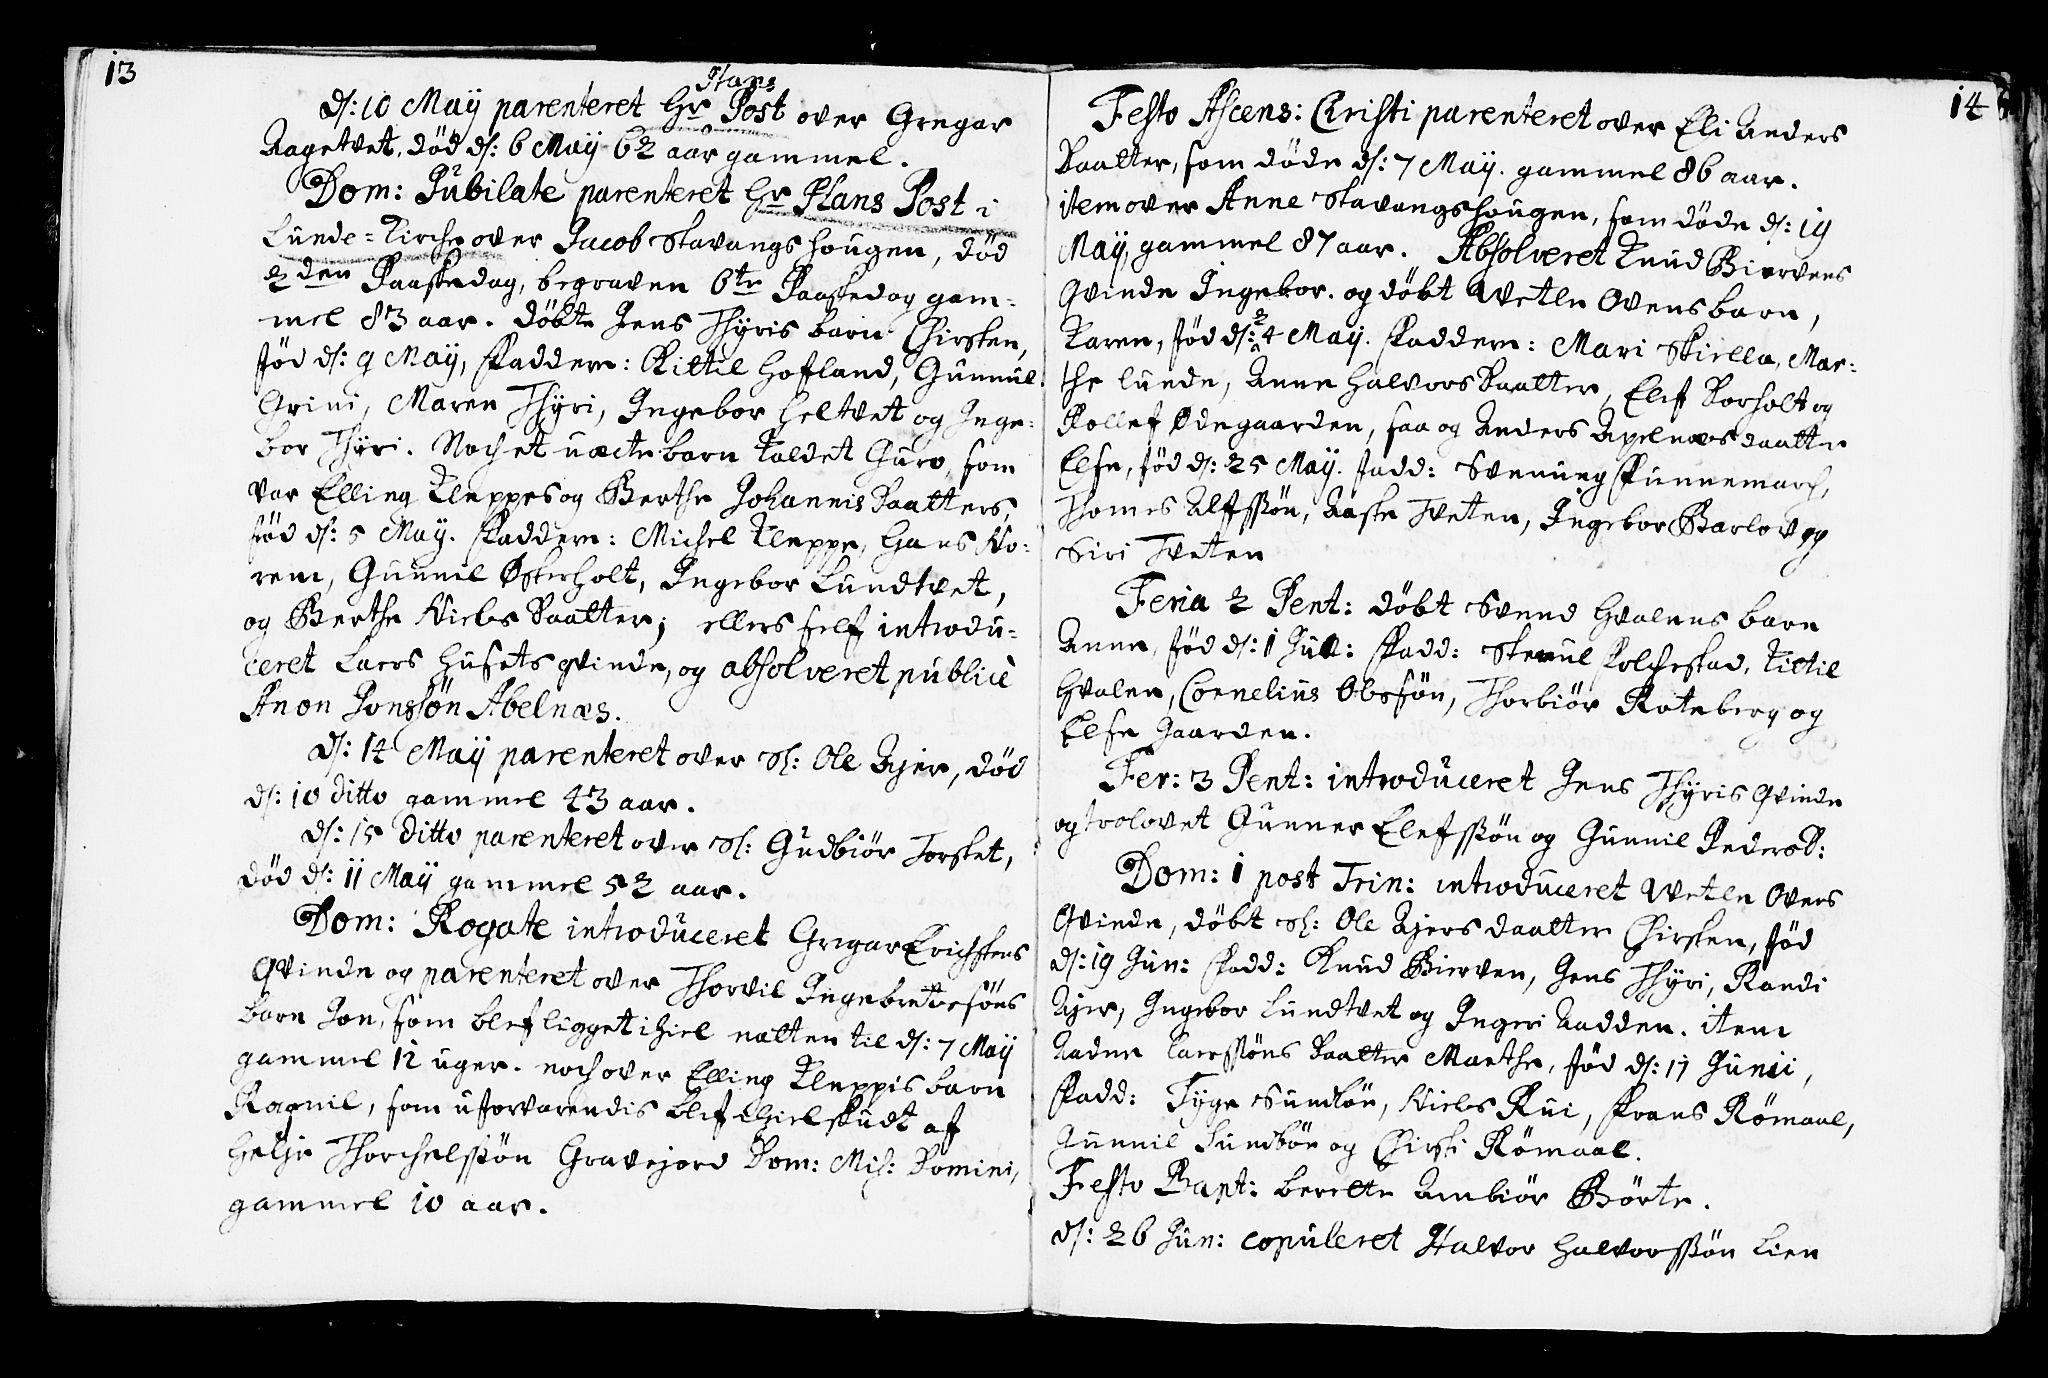 13
Hans
ds: 10 Maÿ parenteret Hr Post over Gregar
Aagetvet, död ds: 6 Maÿ 62 aar gammel.
Dom: Jubilate parenteret Hr Hans Post i
Lunde-Kirche over Jacob Stavangs hougen, död
2den Paaskedag, begraven 6te Paaskedag gam-
mel 83 aar. döbte Jens Thÿris barn Chirsten,
föd ds: 9 Maÿ, Faddere: Kittil Hofland, Gunnul
Grini, Maren Thÿri, Ingebor Heltvet og Inge-
bor Thÿri. Noch et uæcte barn kaldet Guro, som
var Elling Kleppes og Berthe Johannis Daatters,
föd ds: 5 Maÿ. Faddere: Michel Kleppe, Hans No-
rem, Gunnil Østerholt, Ingebor Lundtvet,
og Berthe Niels Daatter; ellers self introdu-
ceret Lars Husets qvinde, og absolveret publicè
Anon Jonssön Abelnæs.
ds: 14 Maÿ parenteret over Sl: Ole Ajer, död
ds: 10 ditto gammel 43 aar.
ds: 15 ditto parenteret over Sl: Gudbiör Torsket,
död ds: 11 Maÿ gammel 52 aar.
Dom: Rogate introduceret Gregar Erichsens
Qvinde og parenteret over Thorvil Ingebretssöns
barn Jon, som blef ligget ihiel natten til ds: 7 Maÿ
gammel 12 uger. noch over Elling Kleppis barn
Ragnil, som uforvarendis blef ihielskudt af
Helje Thorchelssön Gravejord Dom: Mis: Domini,
gammel 10 aar.
14
Festo Ascens: Christi parenteret over Eli Anders
Daatter, som döde ds: 7 Maÿ. gammel 86 aar.
item over Anne Stavangshougen, som döde ds: 19
Maÿ, gammel 87 aar. Absolveret Knud Biervens
Qvinde Ingebor. og döbt Wetle Ovens barn,
Karen, föd ds: 24 Maÿ. Faddere: Mari Skiella, Mar-
the Lunde, Anne Halvors Daatter, Elef Borholt og
Rollef Ødegaarden, saa og Anders Apelnæs daatter
Else, föd ds: 25 Maÿ. fadd: Svenung Funnemarch,
Thomes Alfssön, Aaste Tveten, Ingebor Barlov og
Siri Tveten
Feria 2 Pent: döbt Svend Hvalens barn
Anne, föd ds: 1 Jun: Fadd: Stenul Folchestad, Kittil
Hvalen, Cornelius Obssön, Thorbiör Roteberg og
Else Gaarden.
Fer: 3 Pent: introduceret Jens Thÿris Qvinde
og trolovet Gunner Elefssön og Gunnil PedersD:
Dom: 1 post Trin: introduceret Wetle Overs
Qvinde, döbt Sl: Ole Ajers daatter Chirsten, föd
ds: 19 Jun: Fadd: Knud Bierven, Jens Thÿri, Randi
Ajer, Ingebor Lundtvet og Ingeri Aadden. item
Aaden Larssöns Daatter Marthe, föd ds: 17 Junii,
Fadd: Tÿge Sundbön, Niels Rui, Frans Römaal,
Gunnil Sundbön og Chirsti Römaal.
Festo Bapt: berette Ambiör Börte.
ds: 26 Jun: copuleret Halvor Halvorssön Lien